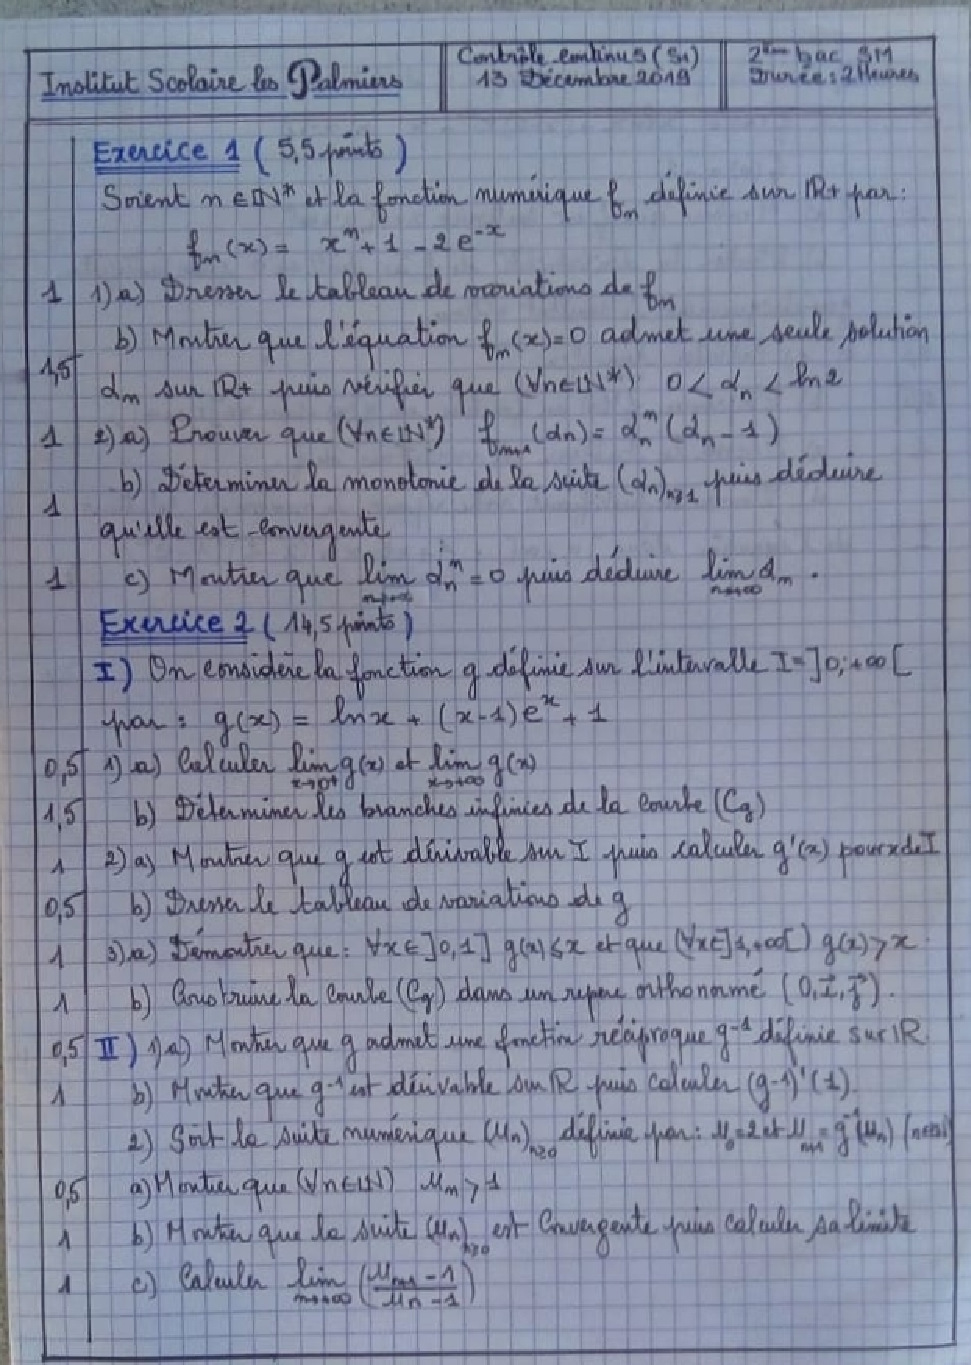 Institut Scolaire les Palmiers
Contrôle continu 5 (S1)
13 Décembre 2019
2ème bac SM
Durée : 2 Heures
Exercice 1 ( 5,5 points )
Soient n ∈ IN* et la fonction numérique fn définie sur IR+ par :
fn(x) = xⁿ + 1 - 2e⁻ˣ
1 1) a) Dresser le tableau de variations de fn
b) Montrer que l'équation fn(x)=0 admet une seule solution
1,5 αn sur IR+ puis vérifier que (∀n∈IN*) 0 < αn < ln2
1 2) a) Prouver que (∀n∈IN*) fn+1(αn) = αnⁿ (αn - 1)
1 b) Déterminer la monotonie de la suite (αn)n≥1 puis déduire
qu'elle est convergente
1 c) Montrer que lim n→+∞ αnⁿ = 0 puis déduire lim n→+∞ αn .
Exercice 2 ( 14,5 points )
I) On considère la fonction g définie sur l'intervalle I = ]0;+∞[
par : g(x) = lnx + (x-1)eˣ + 1
0,5 1) a) Calculer lim x→0+ g(x) et lim x→+∞ g(x)
1,5 b) Déterminer les branches infinies de la courbe (Cg)
1 2) a) Montrer que g est dérivable sur I puis calculer g'(x) pour x de I
0,5 b) Dresser le tableau de variations de g
1 3) a) Démontrer que : ∀x∈]0,1] g(x) ≤ x et que (∀x∈]1,+∞[) g(x) > x
1 b) Construire la courbe (Cg) dans un repère orthonormé (0,i⃗,j⃗).
0,5 II) 1) a) Montrer que g admet une fonction réciproque g⁻¹ définie sur IR
1 b) Montrer que g⁻¹ est dérivable sur IR puis calculer (g⁻¹)'(1).
2) Soit la suite numérique (Un)n≥0 définie par : U0=2 et Un+1 = g⁻¹(Un) (n∈IN)
0,5 a) Montrer que (∀n∈IN) Un > 1
1 b) Montrer que la suite (Un)n≥0 est Convergente puis calculer sa limite
1 c) Calculer lim n→+∞ (Un+1 - 1 / Un - 1)